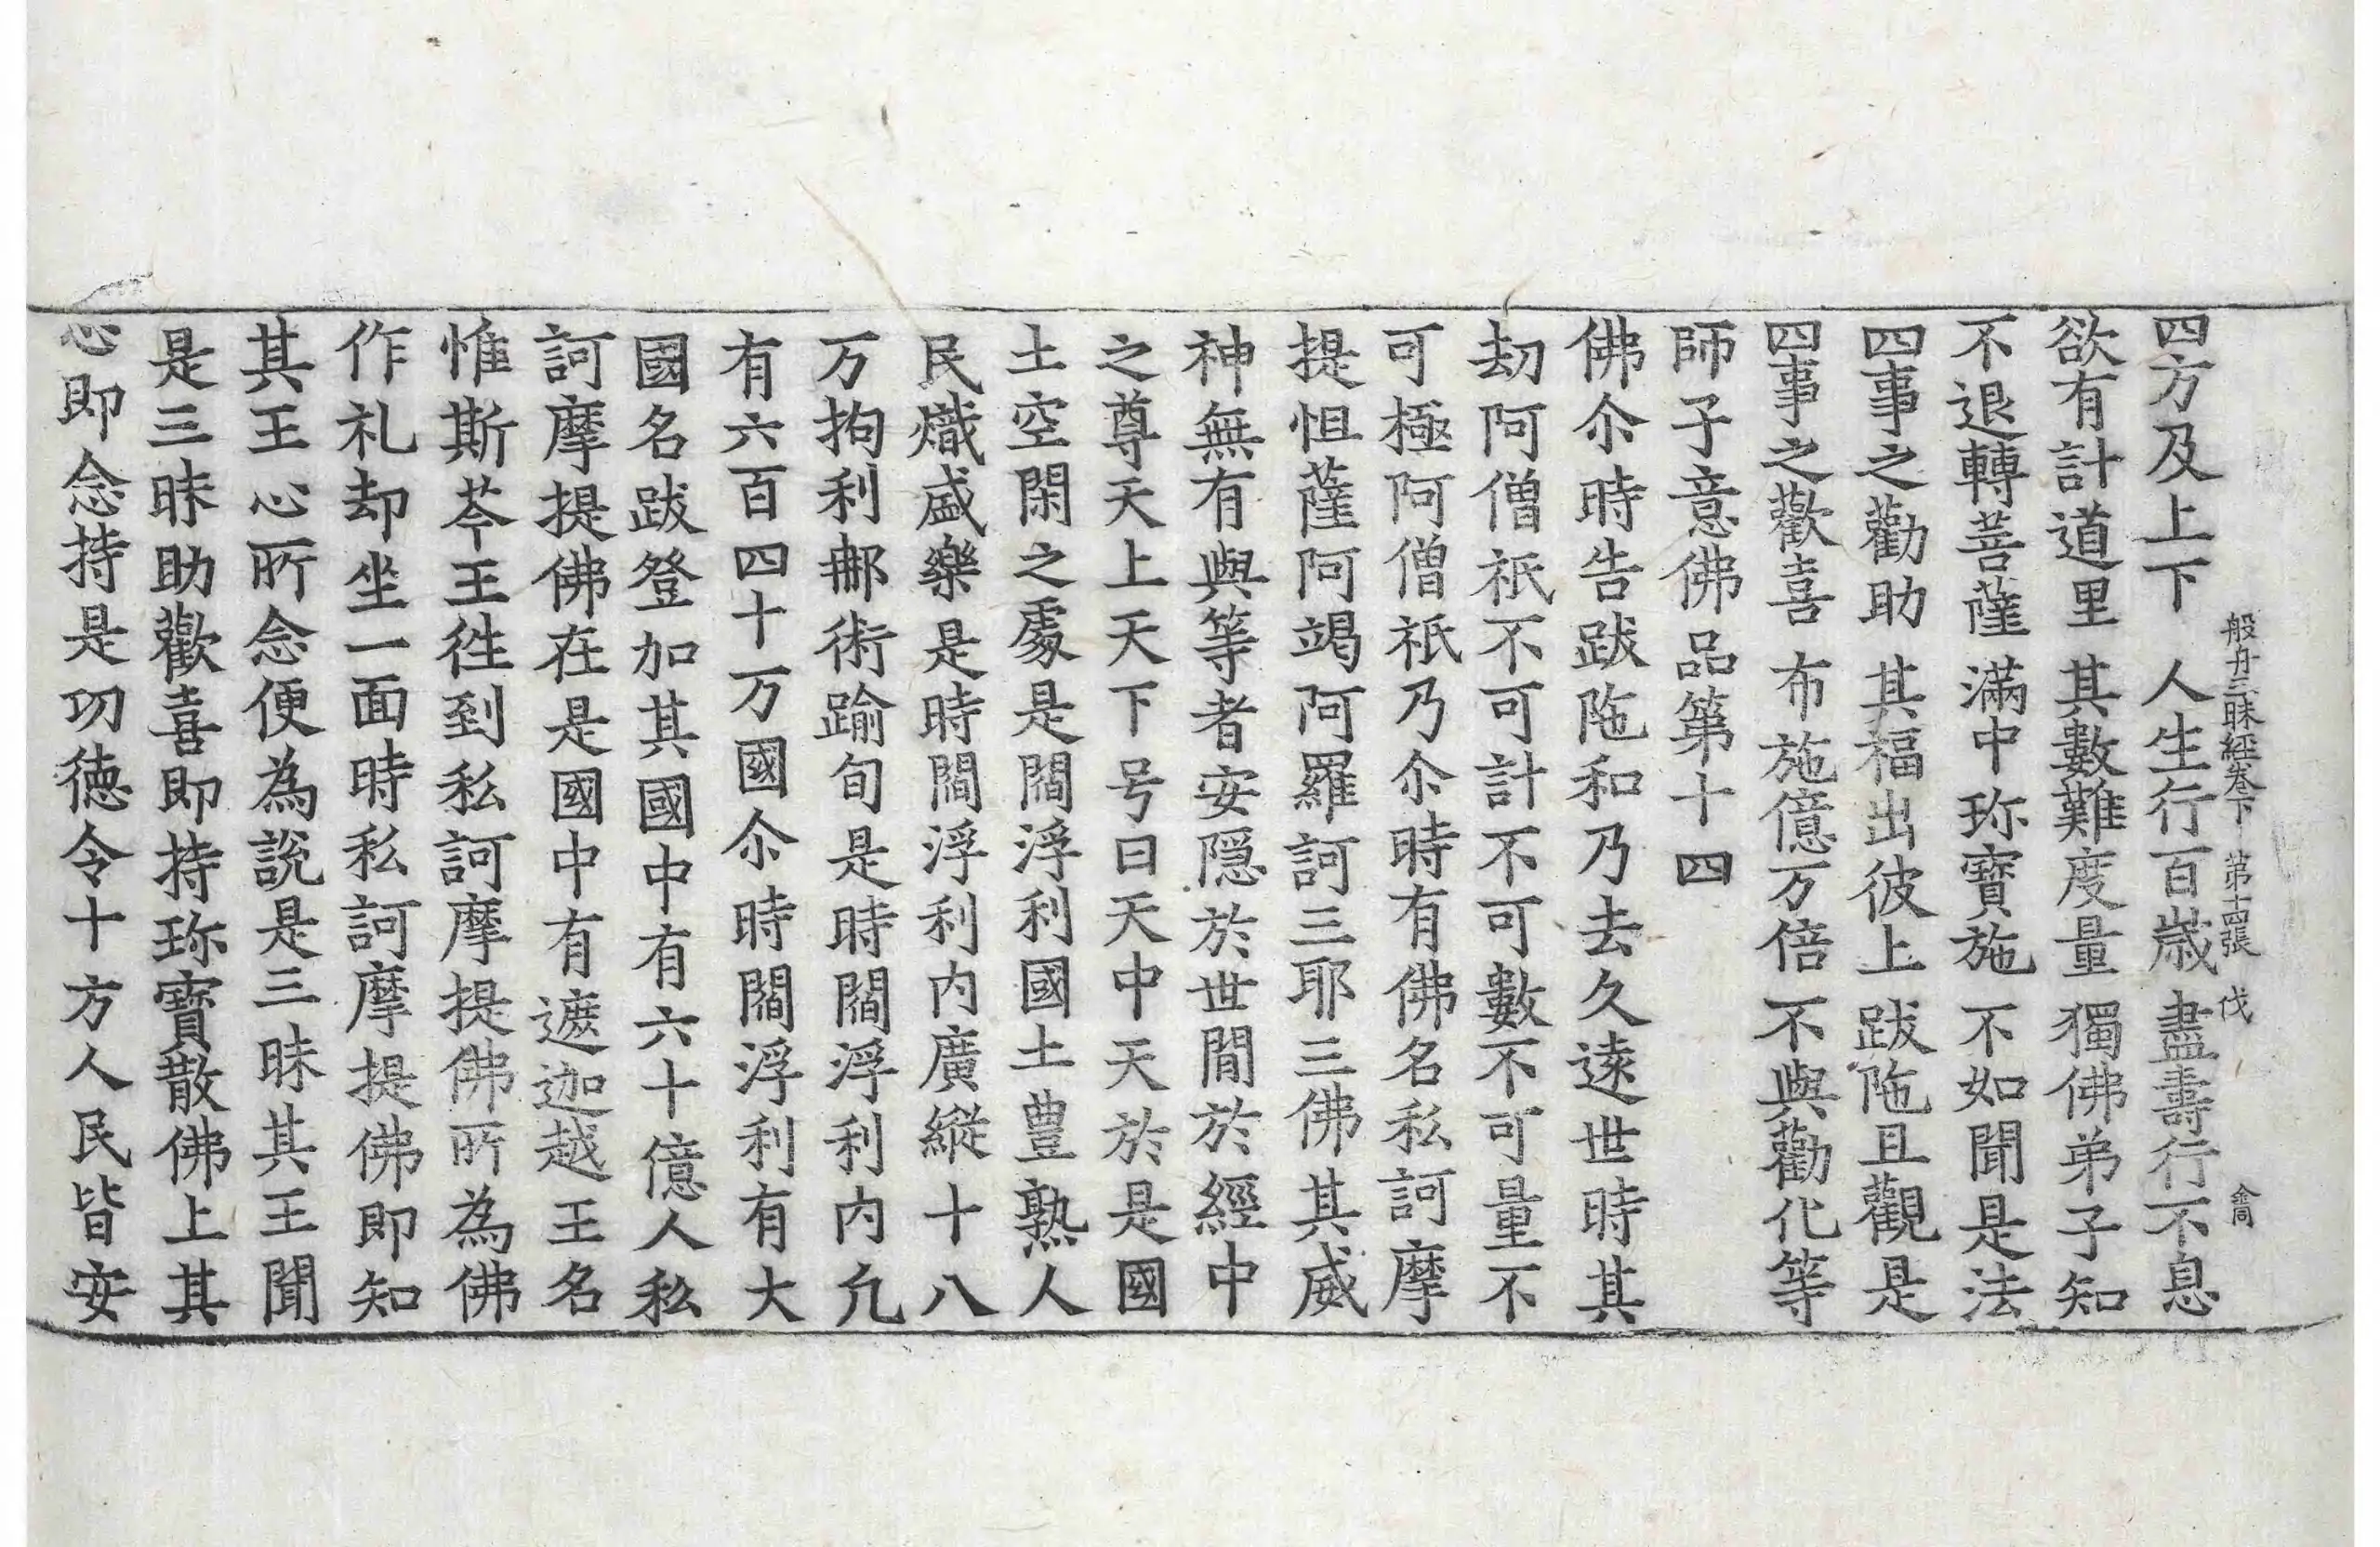 般舟三昧經卷下 第十四張 伐
四方及上下 人生行百歳 盡壽行不息
欲有計道里 其數難度量 獨佛弟子知
不退轉菩薩 滿中珎寶施 不如聞是法
四事之勸助 其福出彼上 跋陁且觀是
四事之歡喜 布施億万倍 不與勸化等
師子意佛品第十四
佛尒時告跋陁和乃去久遠世時其
刧阿僧祇不可計不可數不可量不
可極阿僧祇乃尒時有佛名私訶摩
提怛薩阿竭阿羅訶三耶三佛其威
神無有與等者安隱於世間於經中
之尊天上天下号曰天中天於是國
土空閑之處是閻浮利國土豊熟人
民熾盛樂是時閻浮利内廣縱十八
万拘利那術踰旬是時閻浮利内凢
有六百四十万國尒時閻浮利有大
國名跋登加其國中有六十億人私
訶摩提佛在是國中有遮迦越王名
惟斯芩王徃到私訶摩提佛所為佛
作礼却坐一面時私訶摩提佛即知
其王心所念便為說是三昧其王聞
是三昧助歡喜即持珎寶散佛上其
心即念持是功徳令十方人民皆安